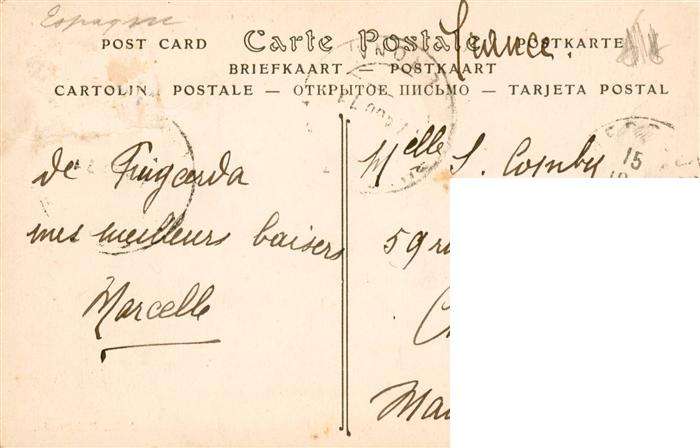 Espagne
France.
POST CARD Carte Postale POSTKARTE
BRIEFKAART — POSTKAART
CARTOLIN. POSTALE — ОТКРЫТОЕ ПИСЬМО — TARJETA POSTAL
de Puigcerda
mes meilleurs baisers
Marcelle
Melle S. Comby
59
15